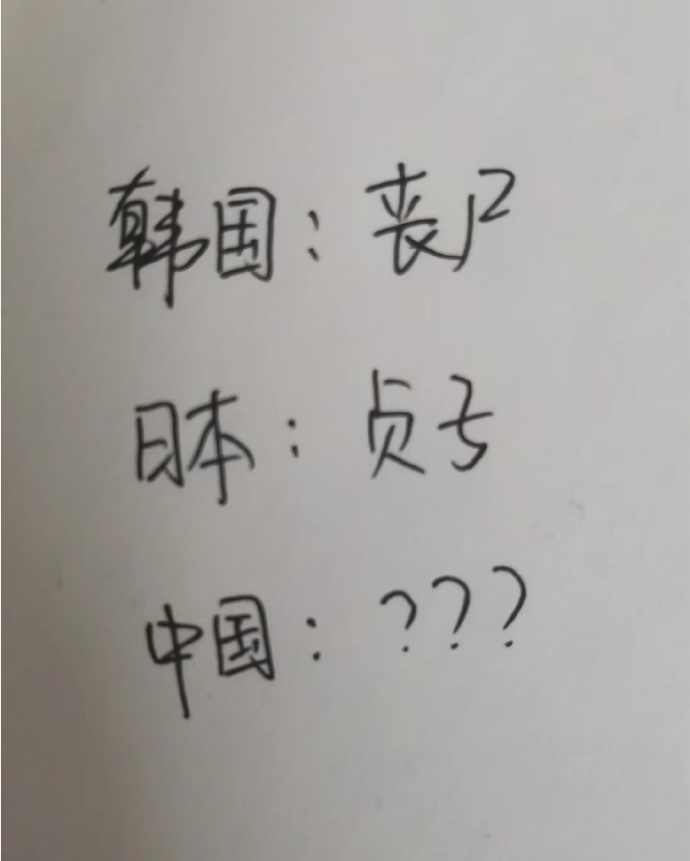 韩国：丧尸
日本：贞子
中国：???